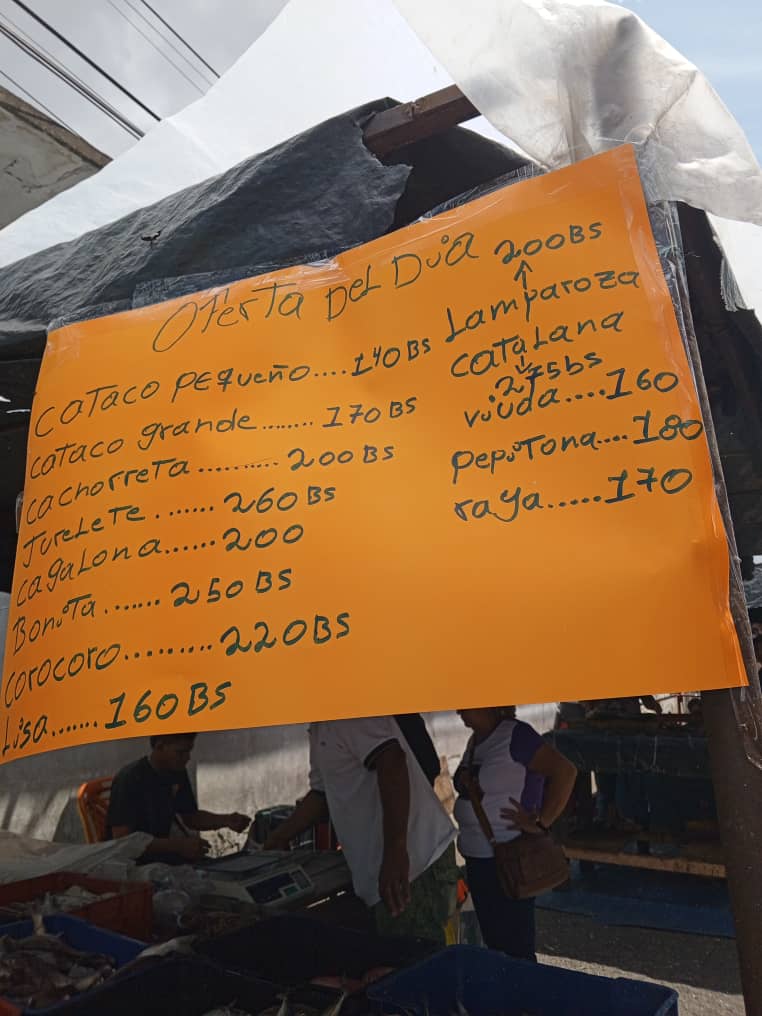 Oferta Del Dia
cataco pequeño....140BS
cataco grande........170BS
cachorreta..........200BS
Jurelete.......260BS
cagalona......200
Bonita.......250BS
corocoro.........220BS
Lisa.......160BS
200BS
↑
Lamparoza
cataLana
↓
.275bs
viuda....160
pepitona....180
raya......170